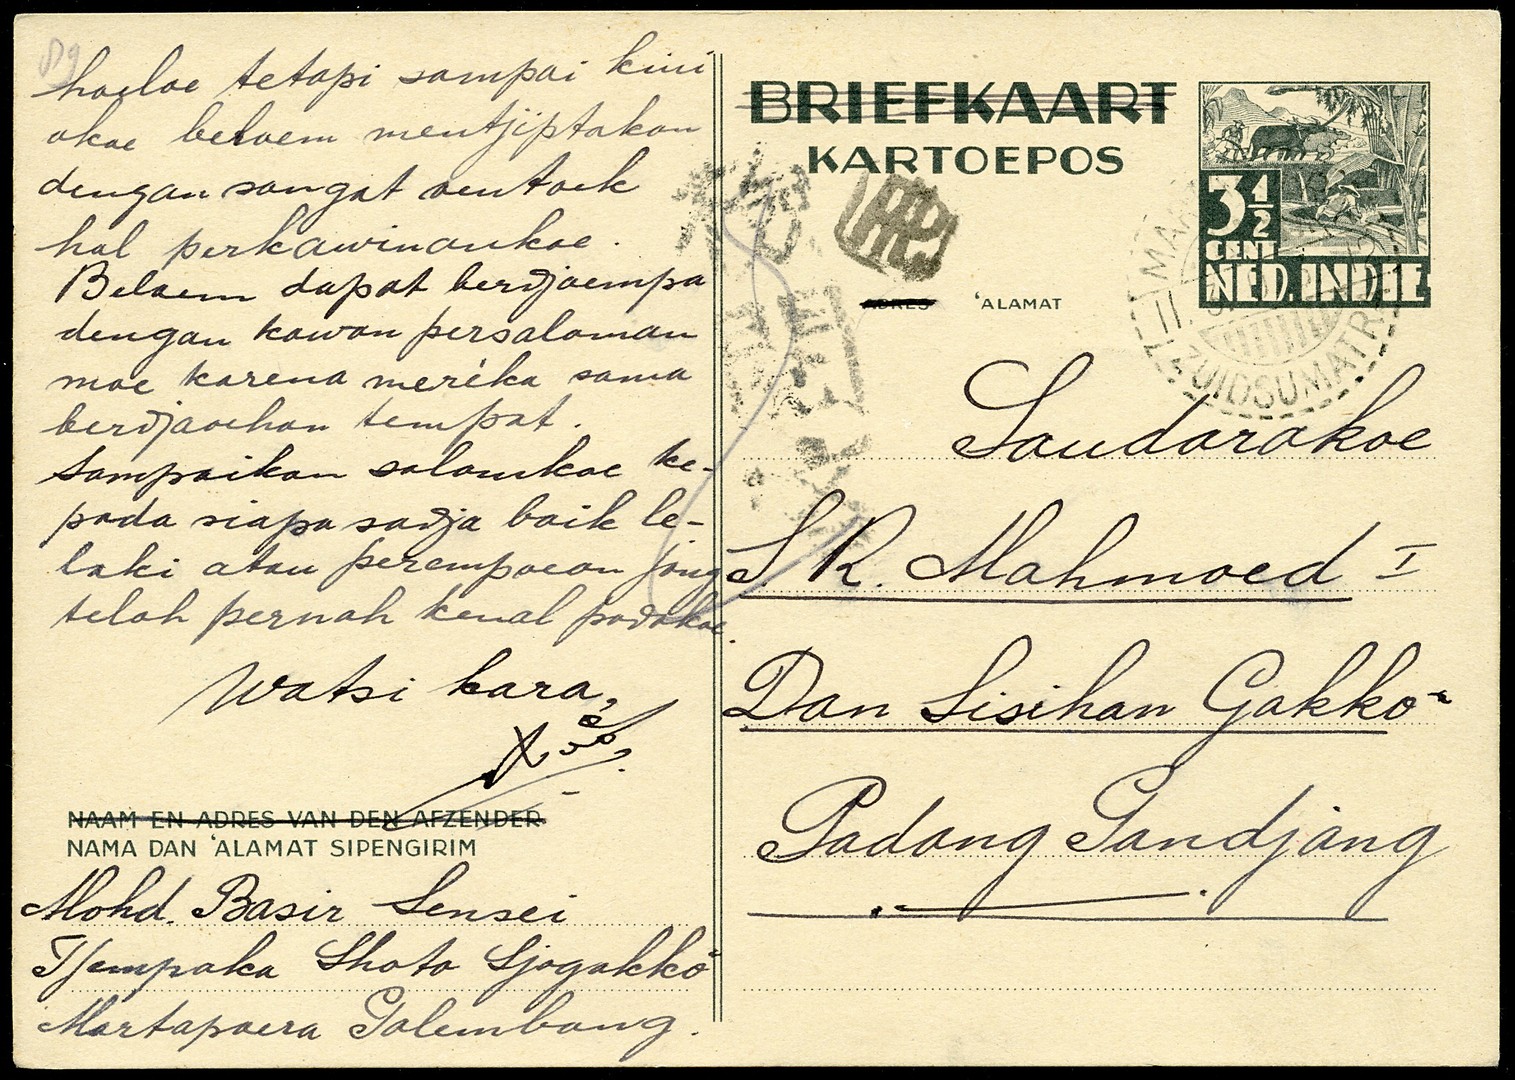 89
hoeloe tetapi sampai kini
akoe beloem mentjiptakan
dengan sangat oentoek
hal perkawinankoe.
Beloem dapat berdjoempa
dengan kawan persalaman
moe karena meréka sama
berdjaoehan tempat.
Sampaikan salamkoe ke-
pada siapa sadja baik le-
laki atau perempoean jang
telah pernah kenal padakoe.
Watasi kara,
NAAM EN ADRES VAN DEN AFZENDER
NAMA DAN 'ALAMAT SIPENGIRIM
Mohd. Basir Sensei
Tjempaka Shoto Sjogakkō
Martapoera Palembang.
BRIEFKAART
KARTOEPOS
3½
CENT
NED. INDIE
ZUIDSUMATRA
ADRES 'ALAMAT
Saudarakoe
S. R. Mahmoed I
Dan Sisihan Gakkō
Padang Pandjang